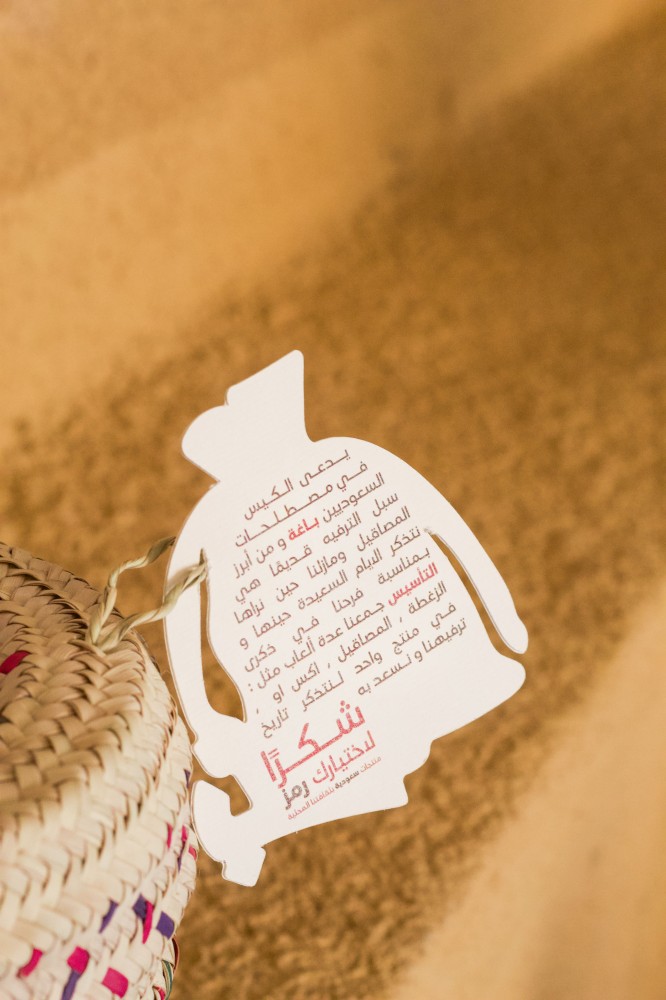 يـدعى الـكيس
في مـصـطلـحـات
السعوديين باغة و من أبرز
سبل الترفيه قـديمًا هي
المصاقيل ومازلنا حين نراها
نتذكر اليام السعيدة حينها و
بـمناسبة فرحنا في ذكرى
التأسيس جـمعنا عدة ألعاب مثل :
الزغطة ، المصاقيل ، اكس او ،
في منتج واحد لـنتذكر تاريخ
ترفيهنا و نـسعد به
شـكـرًا
لاختيارك رمز
منتجات سعودية بثقافتنا المحلية